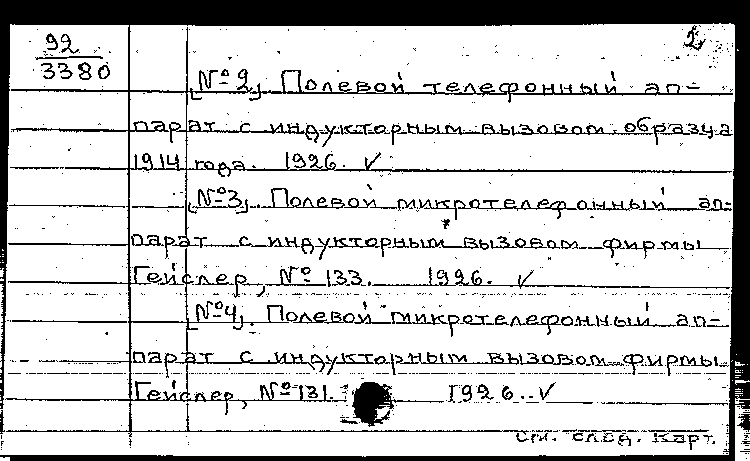 2
92
3380
[№2]. Полевой телефонный ап-
парат с индукторным вызовом образца
1914 года. 1926. ✓
[№3]. Полевой микротелефонный ап-
парат с индукторным вызовом фирмы
Гейслер, № 133. 1926. ✓
[№4]. Полевой микротелефонный ап-
парат с индукторным вызовом фирмы
Гейслер, № 131. 1926. ✓
См. след. карт.